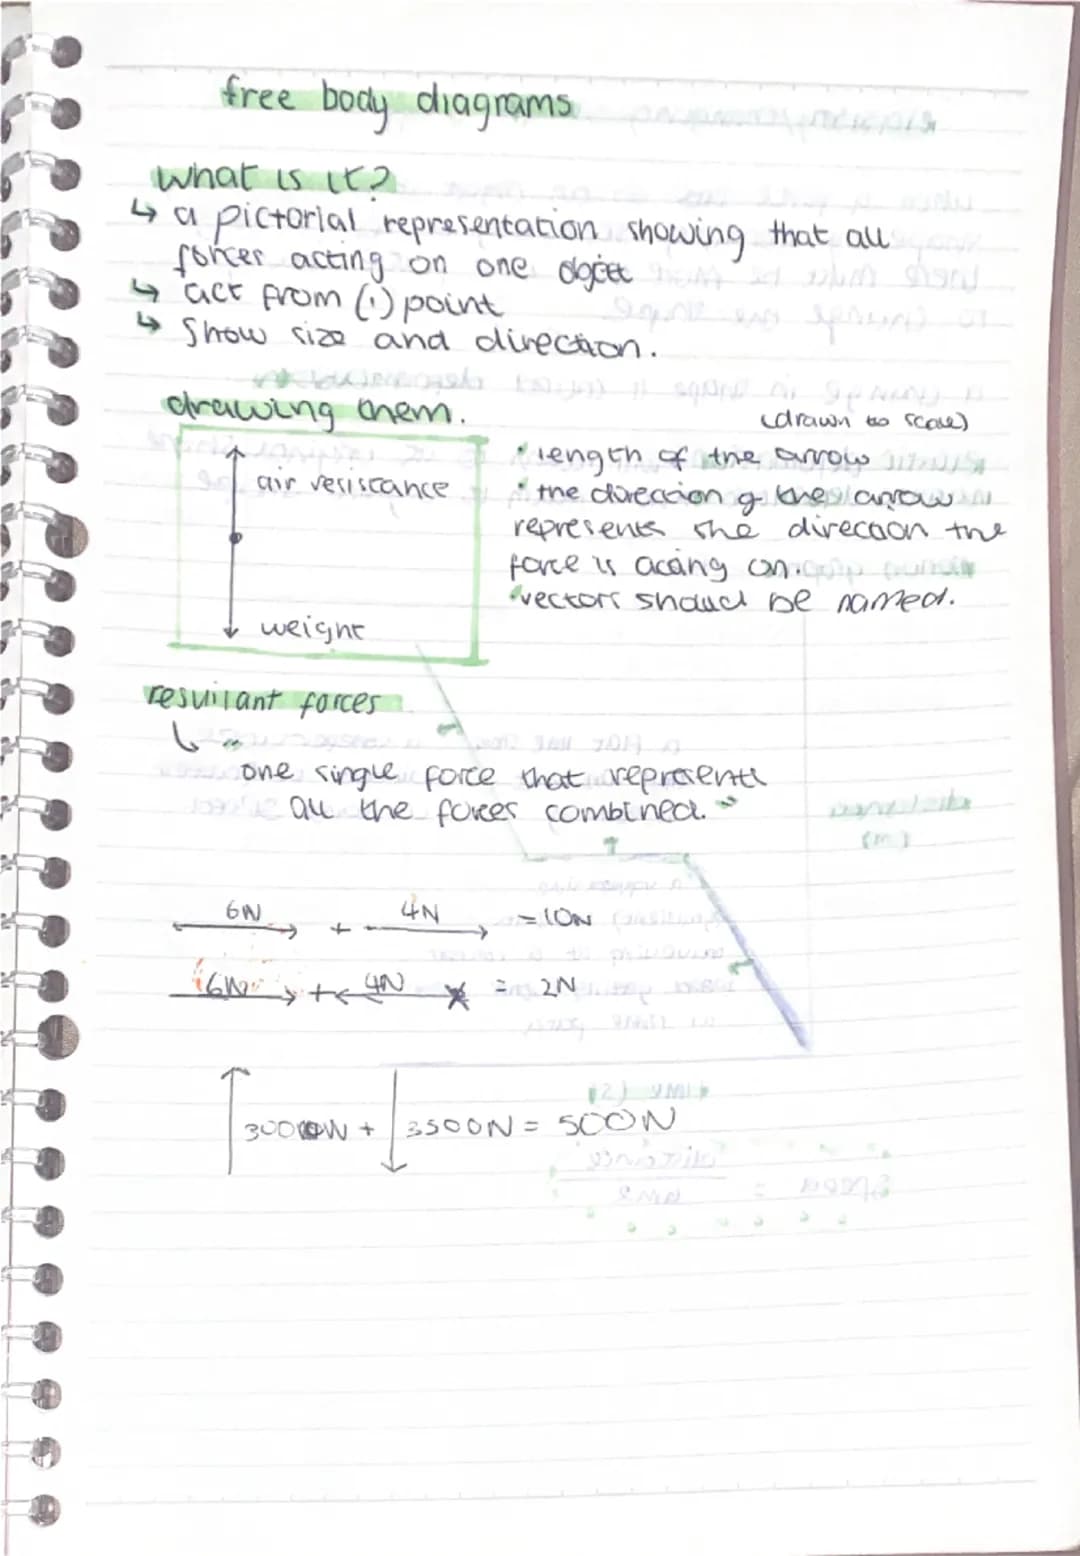 free body diagrams
what is it?
↳ a pictorial representation showing that all
forces acting on one object
↳ act from (1) point
↳ Show size and direction.
drawing them.
(drawn to scale)
• length of the arrow
air resistance
• the direction of the arrow
represents the direction the
force is acting on.
• vectors should be named.
weight
resultant forces
↳ "
one single force that represents
all the forces combined. "
6N + 4N = 10N
6N + 4N = 2N
3000N + 3500N = 500N